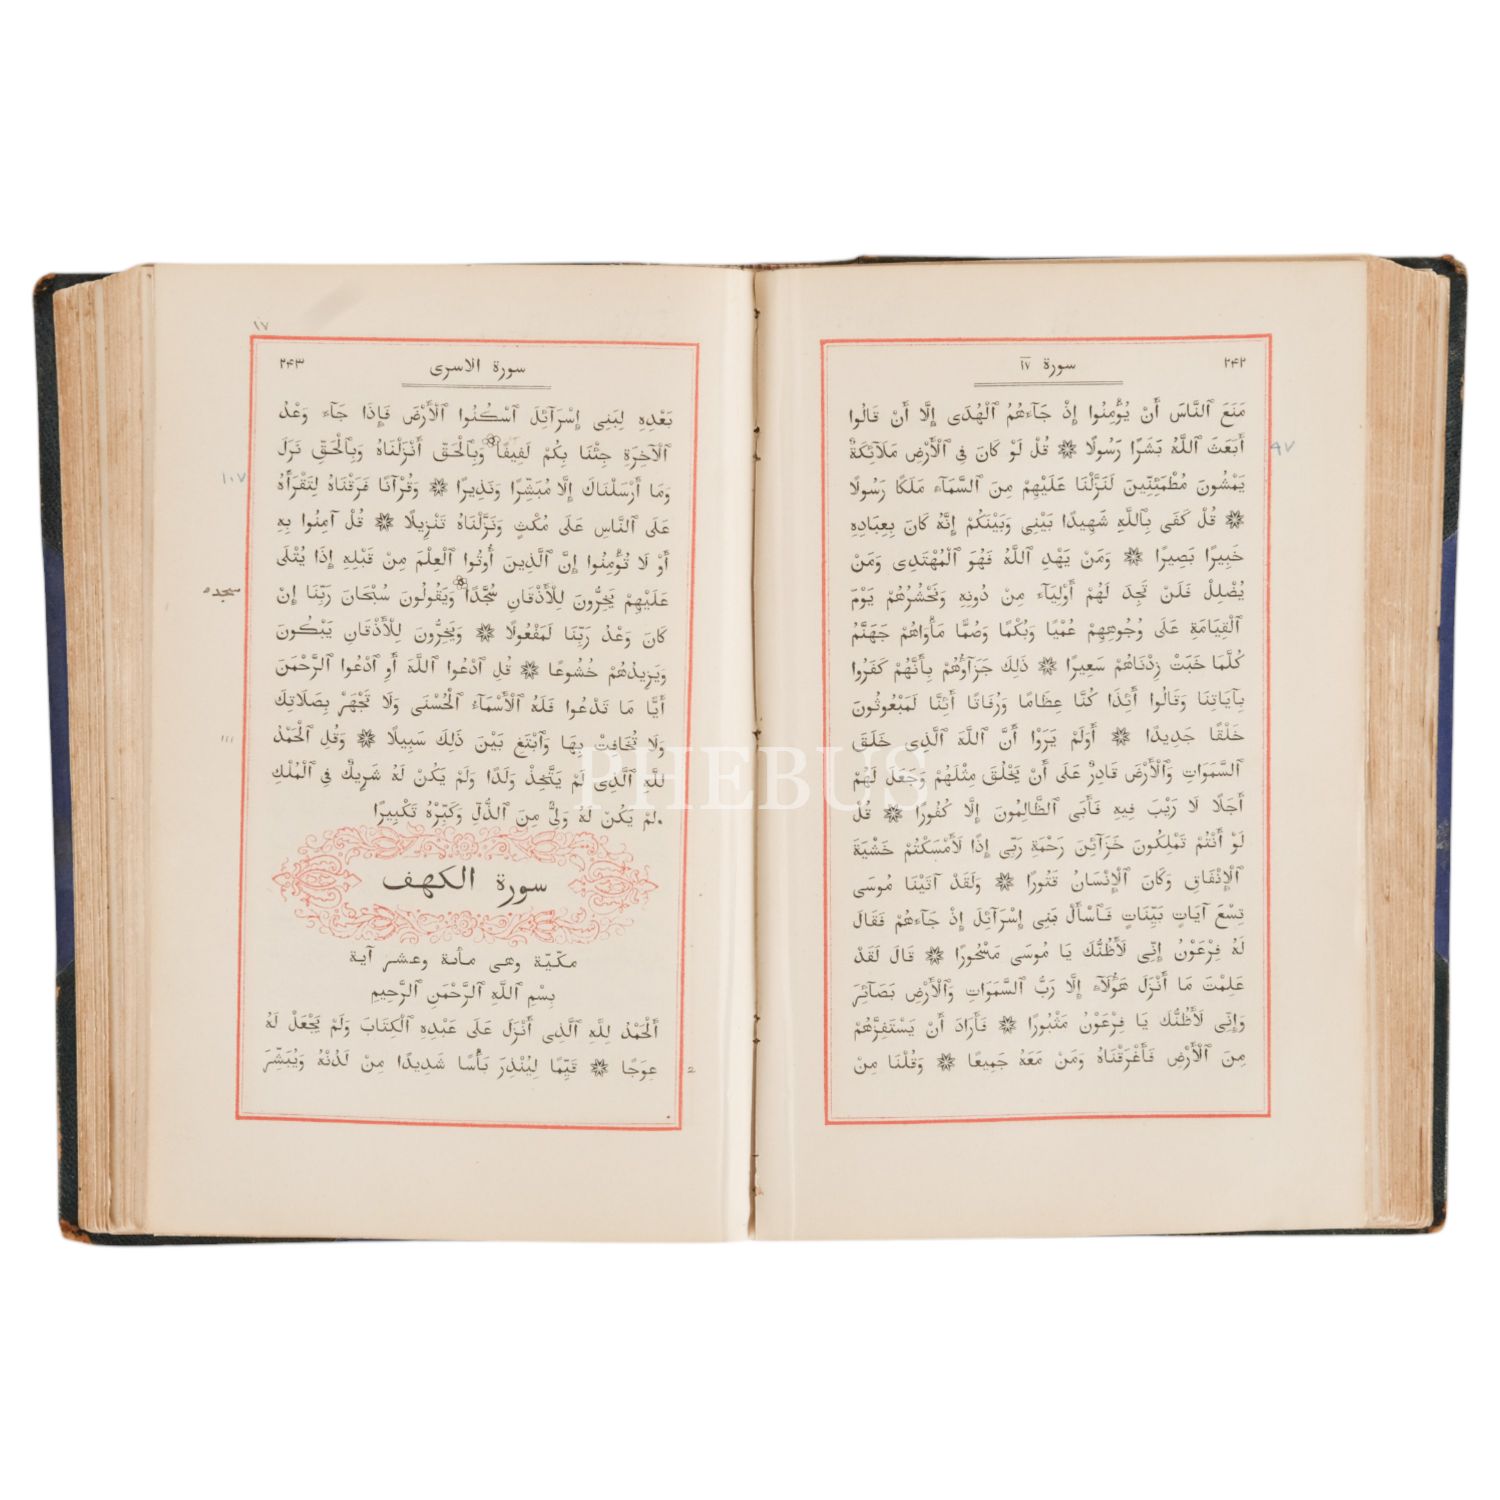 ٢۴٢
سورة ١٧
مَنَعَ ٱلنَّاسَ أَنْ يُؤْمِنُوا إِذْ جَآءَهُمُ ٱلْهُدَى إِلَّا أَنْ قَالُوا
أَبَعَثَ ٱللَّهُ بَشَرًا رَسُولًا ۞ قُلْ لَوْ كَانَ فِى ٱلْأَرْضِ مَلَآئِكَةٌ
٩٧
يَمْشُونَ مُطْمَئِنِّينَ لَنَزَّلْنَا عَلَيْهِمْ مِنَ ٱلسَّمَآءِ مَلَكًا رَسُولًا
۞ قُلْ كَفَى بِٱللَّهِ شَهِيدًا بَيْنِى وَبَيْنَكُمْ إِنَّهُ كَانَ بِعِبَادِهِ
خَبِيرًا بَصِيرًا ۞ وَمَنْ يَهْدِ ٱللَّهُ فَهُوَ ٱلْمُهْتَدِى وَمَنْ
يُضْلِلْ فَلَنْ تَجِدَ لَهُمْ أَوْلِيَآءَ مِنْ دُونِهِ وَنَحْشُرُهُمْ يَوْمَ
ٱلْقِيَامَةِ عَلَى وُجُوهِهِمْ عُمْيًا وَبُكْمًا وَصُمًّا مَأْوَاهُمْ جَهَنَّمُ
كُلَّمَا خَبَتْ زِدْنَاهُمْ سَعِيرًا ۞ ذَلِكَ جَزَآؤُهُمْ بِأَنَّهُمْ كَفَرُوا
بِآيَاتِنَا وَقَالُوا أَئِذَا كُنَّا عِظَامًا وَرُفَاتًا أَئِنَّا لَمَبْعُوثُونَ
خَلْقًا جَدِيدًا ۞ أَوَلَمْ يَرَوْا أَنَّ ٱللَّهَ ٱلَّذِى خَلَقَ
ٱلسَّمَوَاتِ وَٱلْأَرْضَ قَادِرٌ عَلَى أَنْ يَخْلُقَ مِثْلَهُمْ وَجَعَلَ لَهُمْ
أَجَلًا لَا رَيْبَ فِيهِ فَأَبَى ٱلظَّالِمُونَ إِلَّا كُفُورًا ۞ قُلْ
لَوْ أَنْتُمْ تَمْلِكُونَ خَزَآئِنَ رَحْمَةِ رَبِّى إِذًا لَأَمْسَكْتُمْ خَشْيَةَ
ٱلْإِنْفَاقِ وَكَانَ ٱلْإِنْسَانُ قَتُورًا ۞ وَلَقَدْ آتَيْنَا مُوسَى
تِسْعَ آيَاتٍ بَيِّنَاتٍ فَٱسْأَلْ بَنِى إِسْرَآئِلَ إِذْ جَآءَهُمْ فَقَالَ
لَهُ فِرْعَوْنُ إِنِّى لَأَظُنُّكَ يَا مُوسَى مَسْحُورًا ۞ قَالَ لَقَدْ
عَلِمْتَ مَا أَنْزَلَ هَؤُلَآءِ إِلَّا رَبُّ ٱلسَّمَوَاتِ وَٱلْأَرْضِ بَصَآئِرَ
وَإِنِّى لَأَظُنُّكَ يَا فِرْعَوْنُ مَثْبُورًا ۞ فَأَرَادَ أَنْ يَسْتَفِزَّهُمْ
مِنَ ٱلْأَرْضِ فَأَغْرَقْنَاهُ وَمَنْ مَعَهُ جَمِيعًا ۞ وَقُلْنَا مِنْ
١٧
سورة الاسرى
٢۴٣
بَعْدِهِ لِبَنِى إِسْرَآئِلَ ٱسْكُنُوا ٱلْأَرْضَ فَإِذَا جَآءَ وَعْدُ
ٱلْآخِرَةِ جِئْنَا بِكُمْ لَفِيفًا وَبِٱلْحَقِّ أَنْزَلْنَاهُ وَبِٱلْحَقِّ نَزَلَ
وَمَا أَرْسَلْنَاكَ إِلَّا مُبَشِّرًا وَنَذِيرًا ۞ وَقُرْآنًا فَرَقْنَاهُ لِتَقْرَأَهُ
١٠٧
عَلَى ٱلنَّاسِ عَلَى مُكْثٍ وَنَزَّلْنَاهُ تَنْزِيلًا ۞ قُلْ آمِنُوا بِهِ
أَوْ لَا تُؤْمِنُوا إِنَّ ٱلَّذِينَ أُوتُوا ٱلْعِلْمَ مِنْ قَبْلِهِ إِذَا يُتْلَى
عَلَيْهِمْ يَخِرُّونَ لِلْأَذْقَانِ سُجَّدًا وَيَقُولُونَ سُبْحَانَ رَبِّنَا إِنْ
سجده
كَانَ وَعْدُ رَبِّنَا لَمَفْعُولًا ۞ وَيَخِرُّونَ لِلْأَذْقَانِ يَبْكُونَ
وَيَزِيدُهُمْ خُشُوعًا ۞ قُلِ ٱدْعُوا ٱللَّهَ أَوِ ٱدْعُوا ٱلرَّحْمَنَ
أَيًّا مَا تَدْعُوا فَلَهُ ٱلْأَسْمَآءُ ٱلْحُسْنَى وَلَا تَجْهَرْ بِصَلَاتِكَ
وَلَا تُخَافِتْ بِهَا وَٱبْتَغِ بَيْنَ ذَلِكَ سَبِيلًا ۞ وَقُلِ ٱلْحَمْدُ
١١١
لِلَّهِ ٱلَّذِى لَمْ يَتَّخِذْ وَلَدًا وَلَمْ يَكُنْ لَهُ شَرِيكٌ فِى ٱلْمُلْكِ
وَلَمْ يَكُنْ لَهُ وَلِىٌّ مِنَ ٱلذُّلِّ وَكَبِّرْهُ تَكْبِيرًا
سورة الكهف
مكّيّة وهى مائة وعشر آية
بِسْمِ ٱللَّهِ ٱلرَّحْمَنِ ٱلرَّحِيمِ
ٱلْحَمْدُ لِلَّهِ ٱلَّذِى أَنْزَلَ عَلَى عَبْدِهِ ٱلْكِتَابَ وَلَمْ يَجْعَلْ لَهُ
عِوَجًا ۞ قَيِّمًا لِيُنْذِرَ بَأْسًا شَدِيدًا مِنْ لَدُنْهُ وَيُبَشِّرَ
PHEBUS